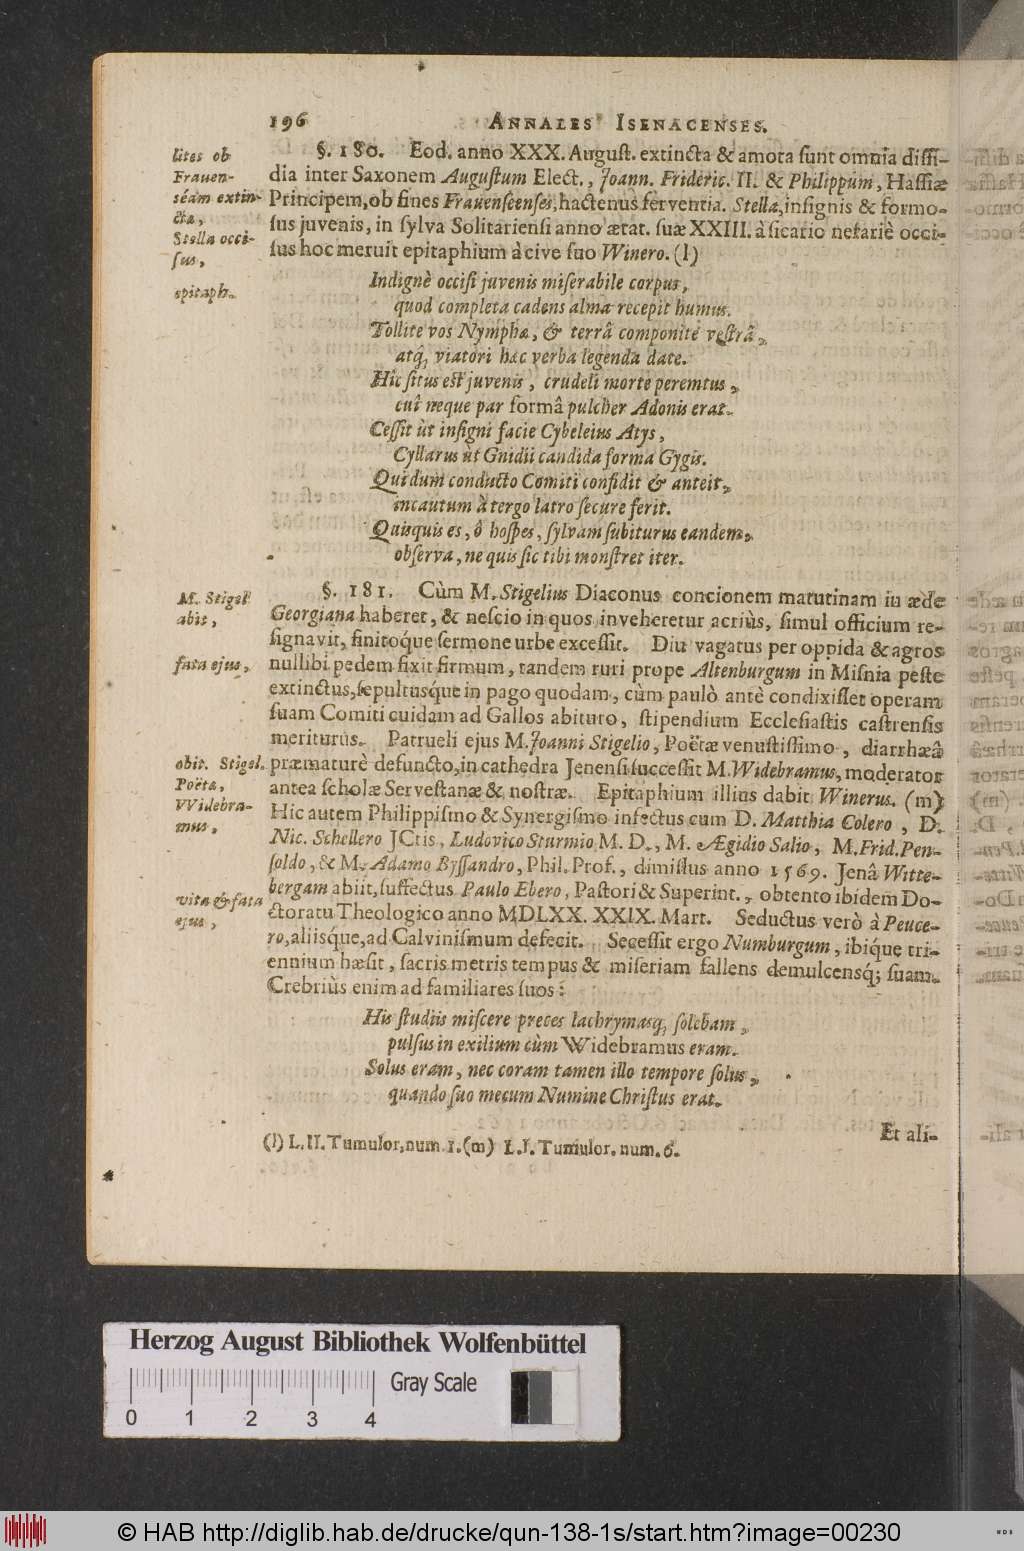 196 ANNALES ISENACENSES.
§. 180. Eod. anno XXX. August. extincta & amota sunt omnia dissi-
dia inter Saxonem Augustum Elect., Joann. Frideric. II. & Philippum, Hassiæ
Principem, ob fines Frauenseenses, hactenus ferventia. Stella, insignis & formo-
sus juvenis, in sylva Solitariensi anno ætat. suæ XXIII. à sicario nefariè occi-
sus hoc meruit epitaphium à cive suo Winero. (l)
lites ob
Frauen-
séam extin-
cta,
Stella occi-
sus,
epitaph.
Indignè occisi juvenis miserabile corpus,
quod completa cadens alma recepit humus.
Tollite vos Nymphæ, & terrâ componite vestrâ,
atq; viatori hæc verba legenda date.
Hîc situs est juvenis, crudeli morte peremtus,
cuî neque par formâ pulcher Adonis erat.
Cessit ùt insigni facie Cybeleius Atys,
Cyllarus ùt Gnidii candida forma Gygis.
Qui dum conducto Comiti confidit & anteit,
incautum à tergo latro secure ferit.
Quisquis es, ô hospes, sylvam subiturus eandem,
observa, ne quis sic tibi monstret iter.
§. 181. Cùm M. Stigelius Diaconus concionem matutinam in æde
Georgiana haberet, & nescio in quos inveheretur acriùs, simul officium re-
signavit, finitoque sermone urbe excessit. Diu vagatus per oppida & agros
nullibi pedem fixit firmum, tandem ruri prope Altenburgum in Misnia peste
extinctus, sepultusque in pago quodam, cùm paulò antè condixisset operam
suam Comiti cuidam ad Gallos abituro, stipendium Ecclesiastis castrensis
meriturus. Patrueli ejus M. Joanni Stigelio, Poëtæ venustissimo, diarrhæâ
præmaturè defuncto, in cathedra Jenensi successit M. Widebramus, moderator
antea scholæ Servestanæ & nostræ. Epitaphium illius dabit Winerus. (m)
Hic autem Philippismo & Synergismo infectus cum D. Matthia Colero, D.
Nic. Schellero JCtis, Ludovico Sturmio M. D., M. Ægidio Salio, M. Frid. Pen-
soldo, & M. Adamo Byssandro, Phil. Prof., dimissus anno 1569. Jenâ Witte-
bergam abiit, suffectus Paulo Ebero, Pastori & Superint., obtento ibidem Do-
ctoratu Theologico anno MDLXX. XXIX. Mart. Seductus verò à Peuce-
ro, aliisque, ad Calvinismum defecit. Secessit ergo Numburgum, ibique tri-
ennium hæsit, sacris metris tempus & miseriam fallens demulcensq; suam.
Crebriùs enim ad familiares suos:
M. Stigel
abit,
fata ejus,
obit. Stigel.
Poëta,
Widebra-
mus,
vita & fata
ejus,
His studiis miscere preces lachrymasq; solebam,
pulsus in exilium cùm Widebramus eram.
Solus eram, nec coram tamen illo tempore solus,
quando suo mecum Numine Christus erat.
Et ali-
(l) L. II. Tumulor. num. 1. (m) L. I. Tumulor. num. 6.
Herzog August Bibliothek Wolfenbüttel
Gray Scale
0 1 2 3 4
© HAB http://diglib.hab.de/drucke/qun-138-1s/start.htm?image=00230